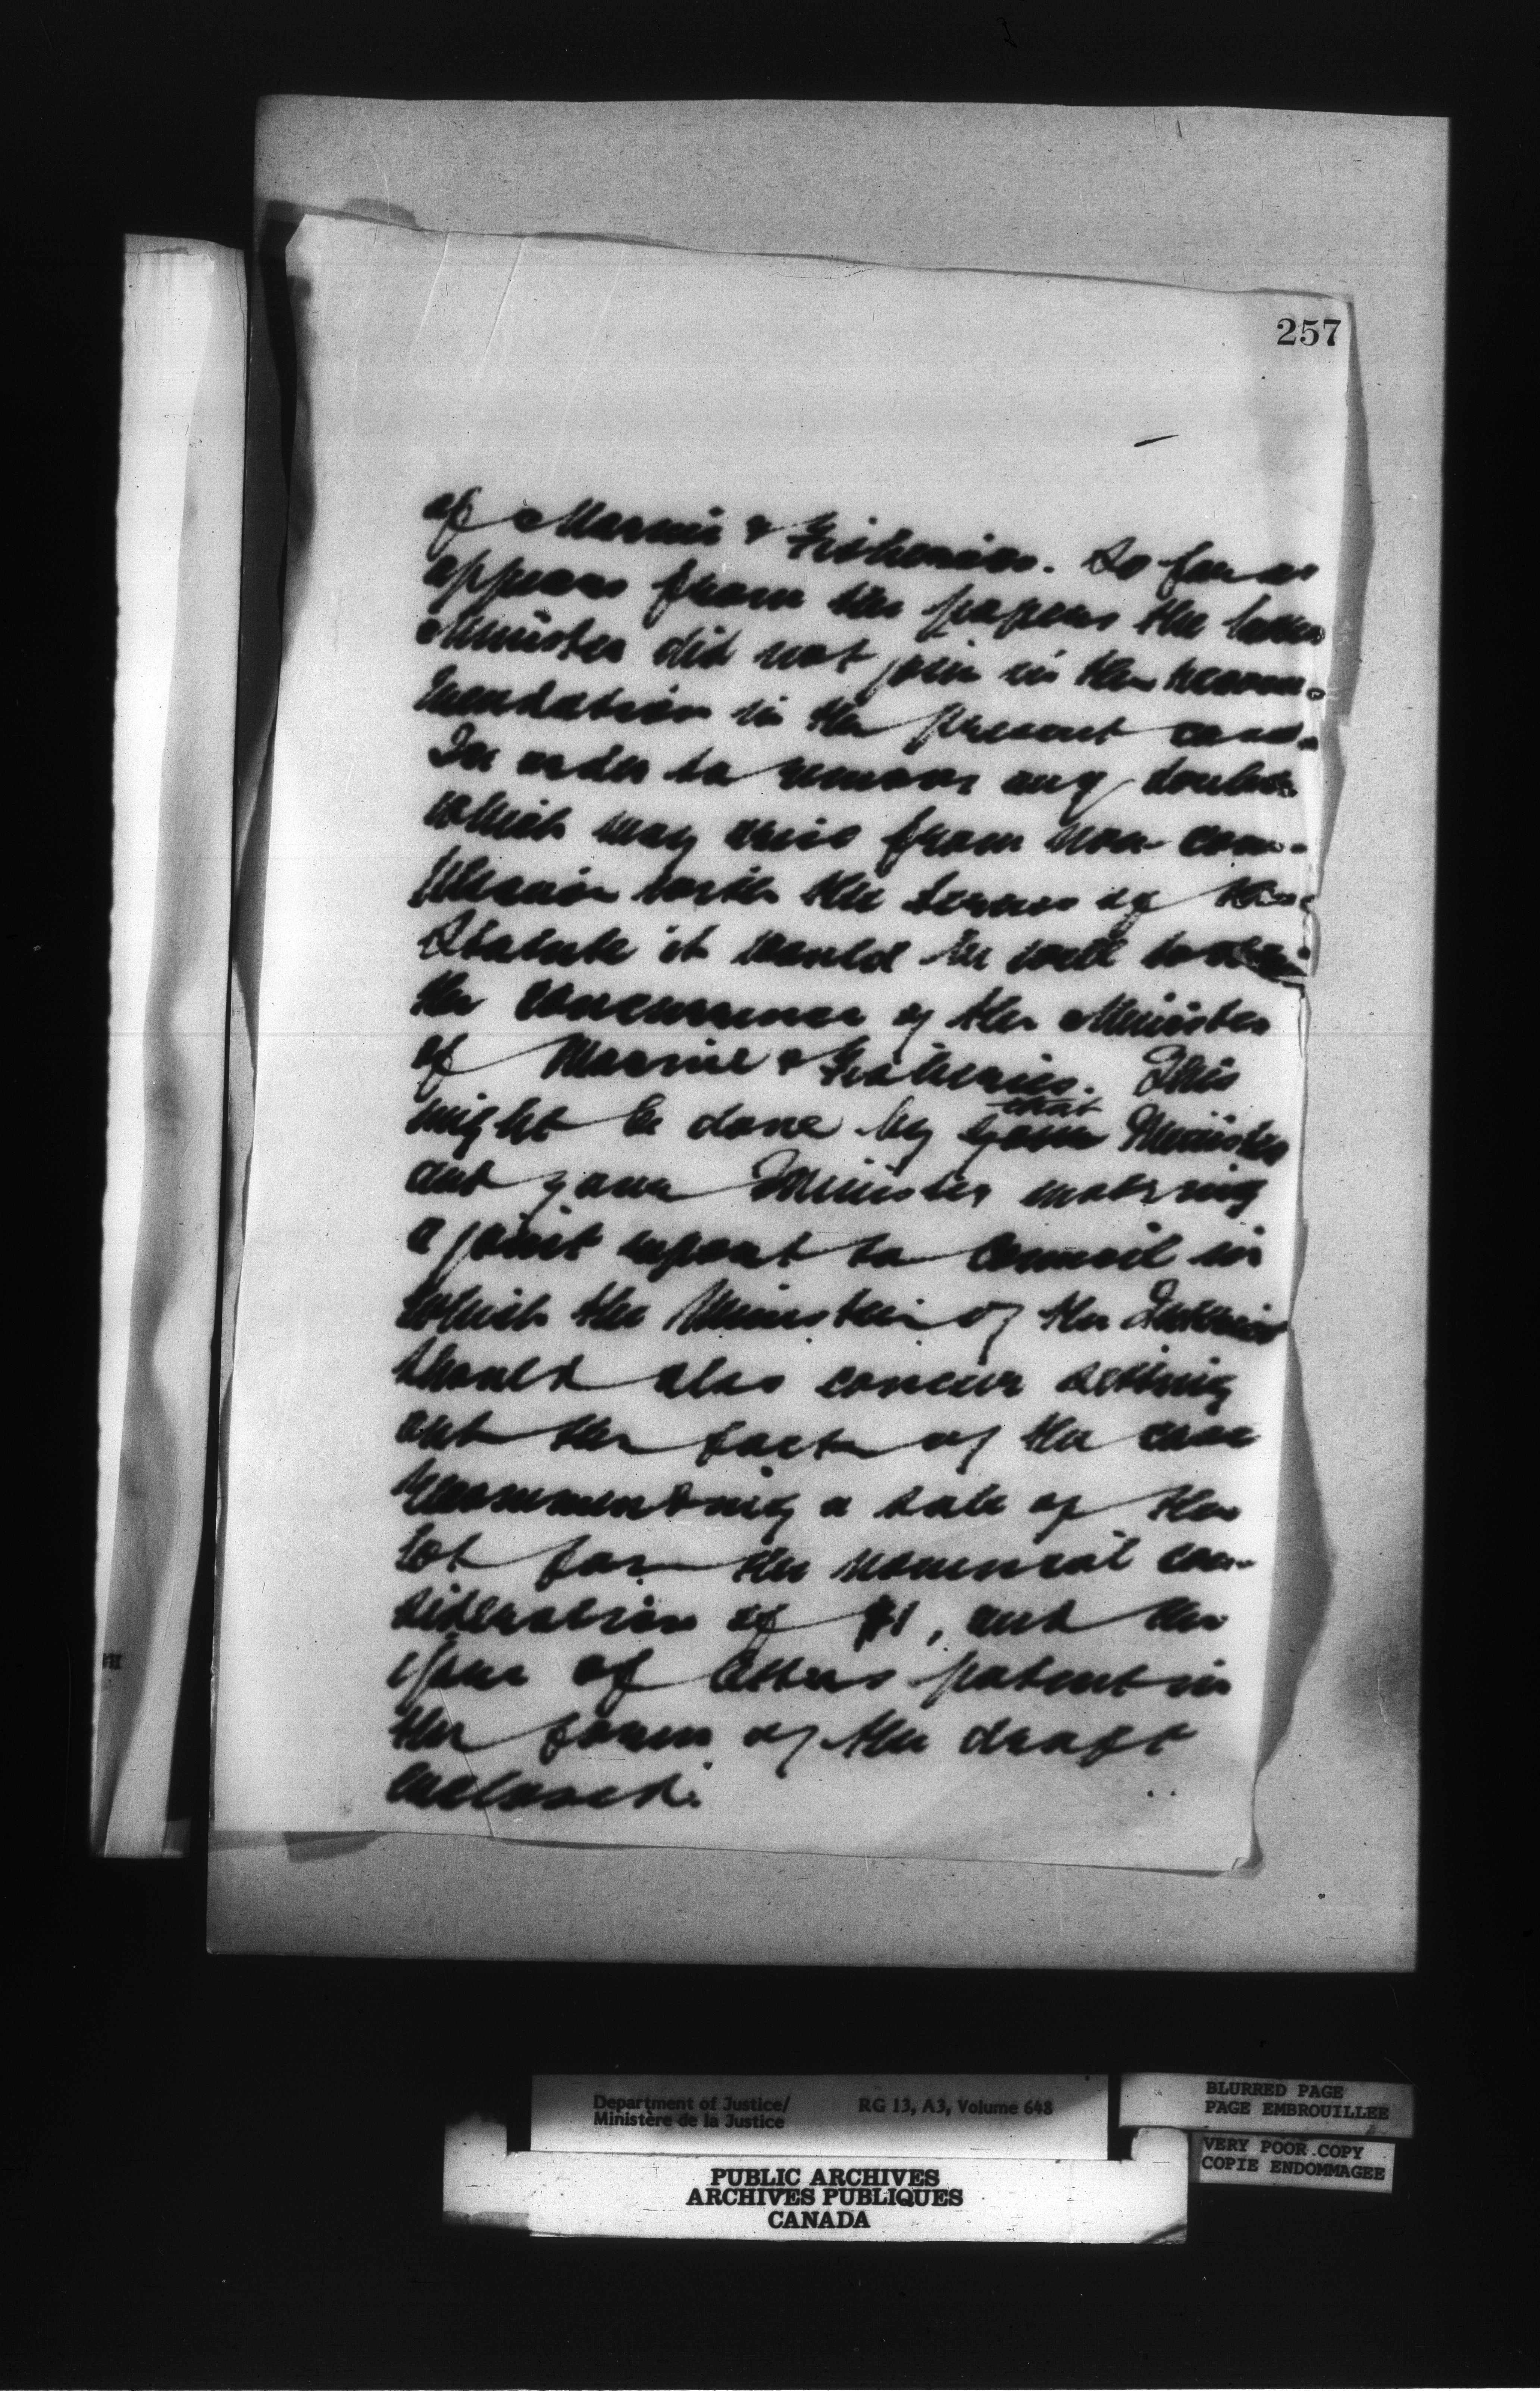 257
of Marine & Fisheries. So far as
appears from the papers the latter
Minister did not join in the recom-
mendation in the present case.
In order to remove any doubts
which may arise from non-com-
pliance with the terms of the
Statute it would be well to obtain
the concurrence of the Minister
of Marine & Fisheries. This
might be done by that Minister
and your Minister making
a joint report to Council in
which the Minister of the Interior
should also concur setting
out the facts of the case
recommending a sale of the
lot for the nominal con-
sideration of $1, and the
issue of letters patent in
the form of the draft
enclosed.
Department of Justice/
Ministère de la Justice
RG 13, A3, Volume 648
BLURRED PAGE
PAGE EMBROUILLEE
VERY POOR COPY
COPIE ENDOMMAGEE
PUBLIC ARCHIVES
ARCHIVES PUBLIQUES
CANADA